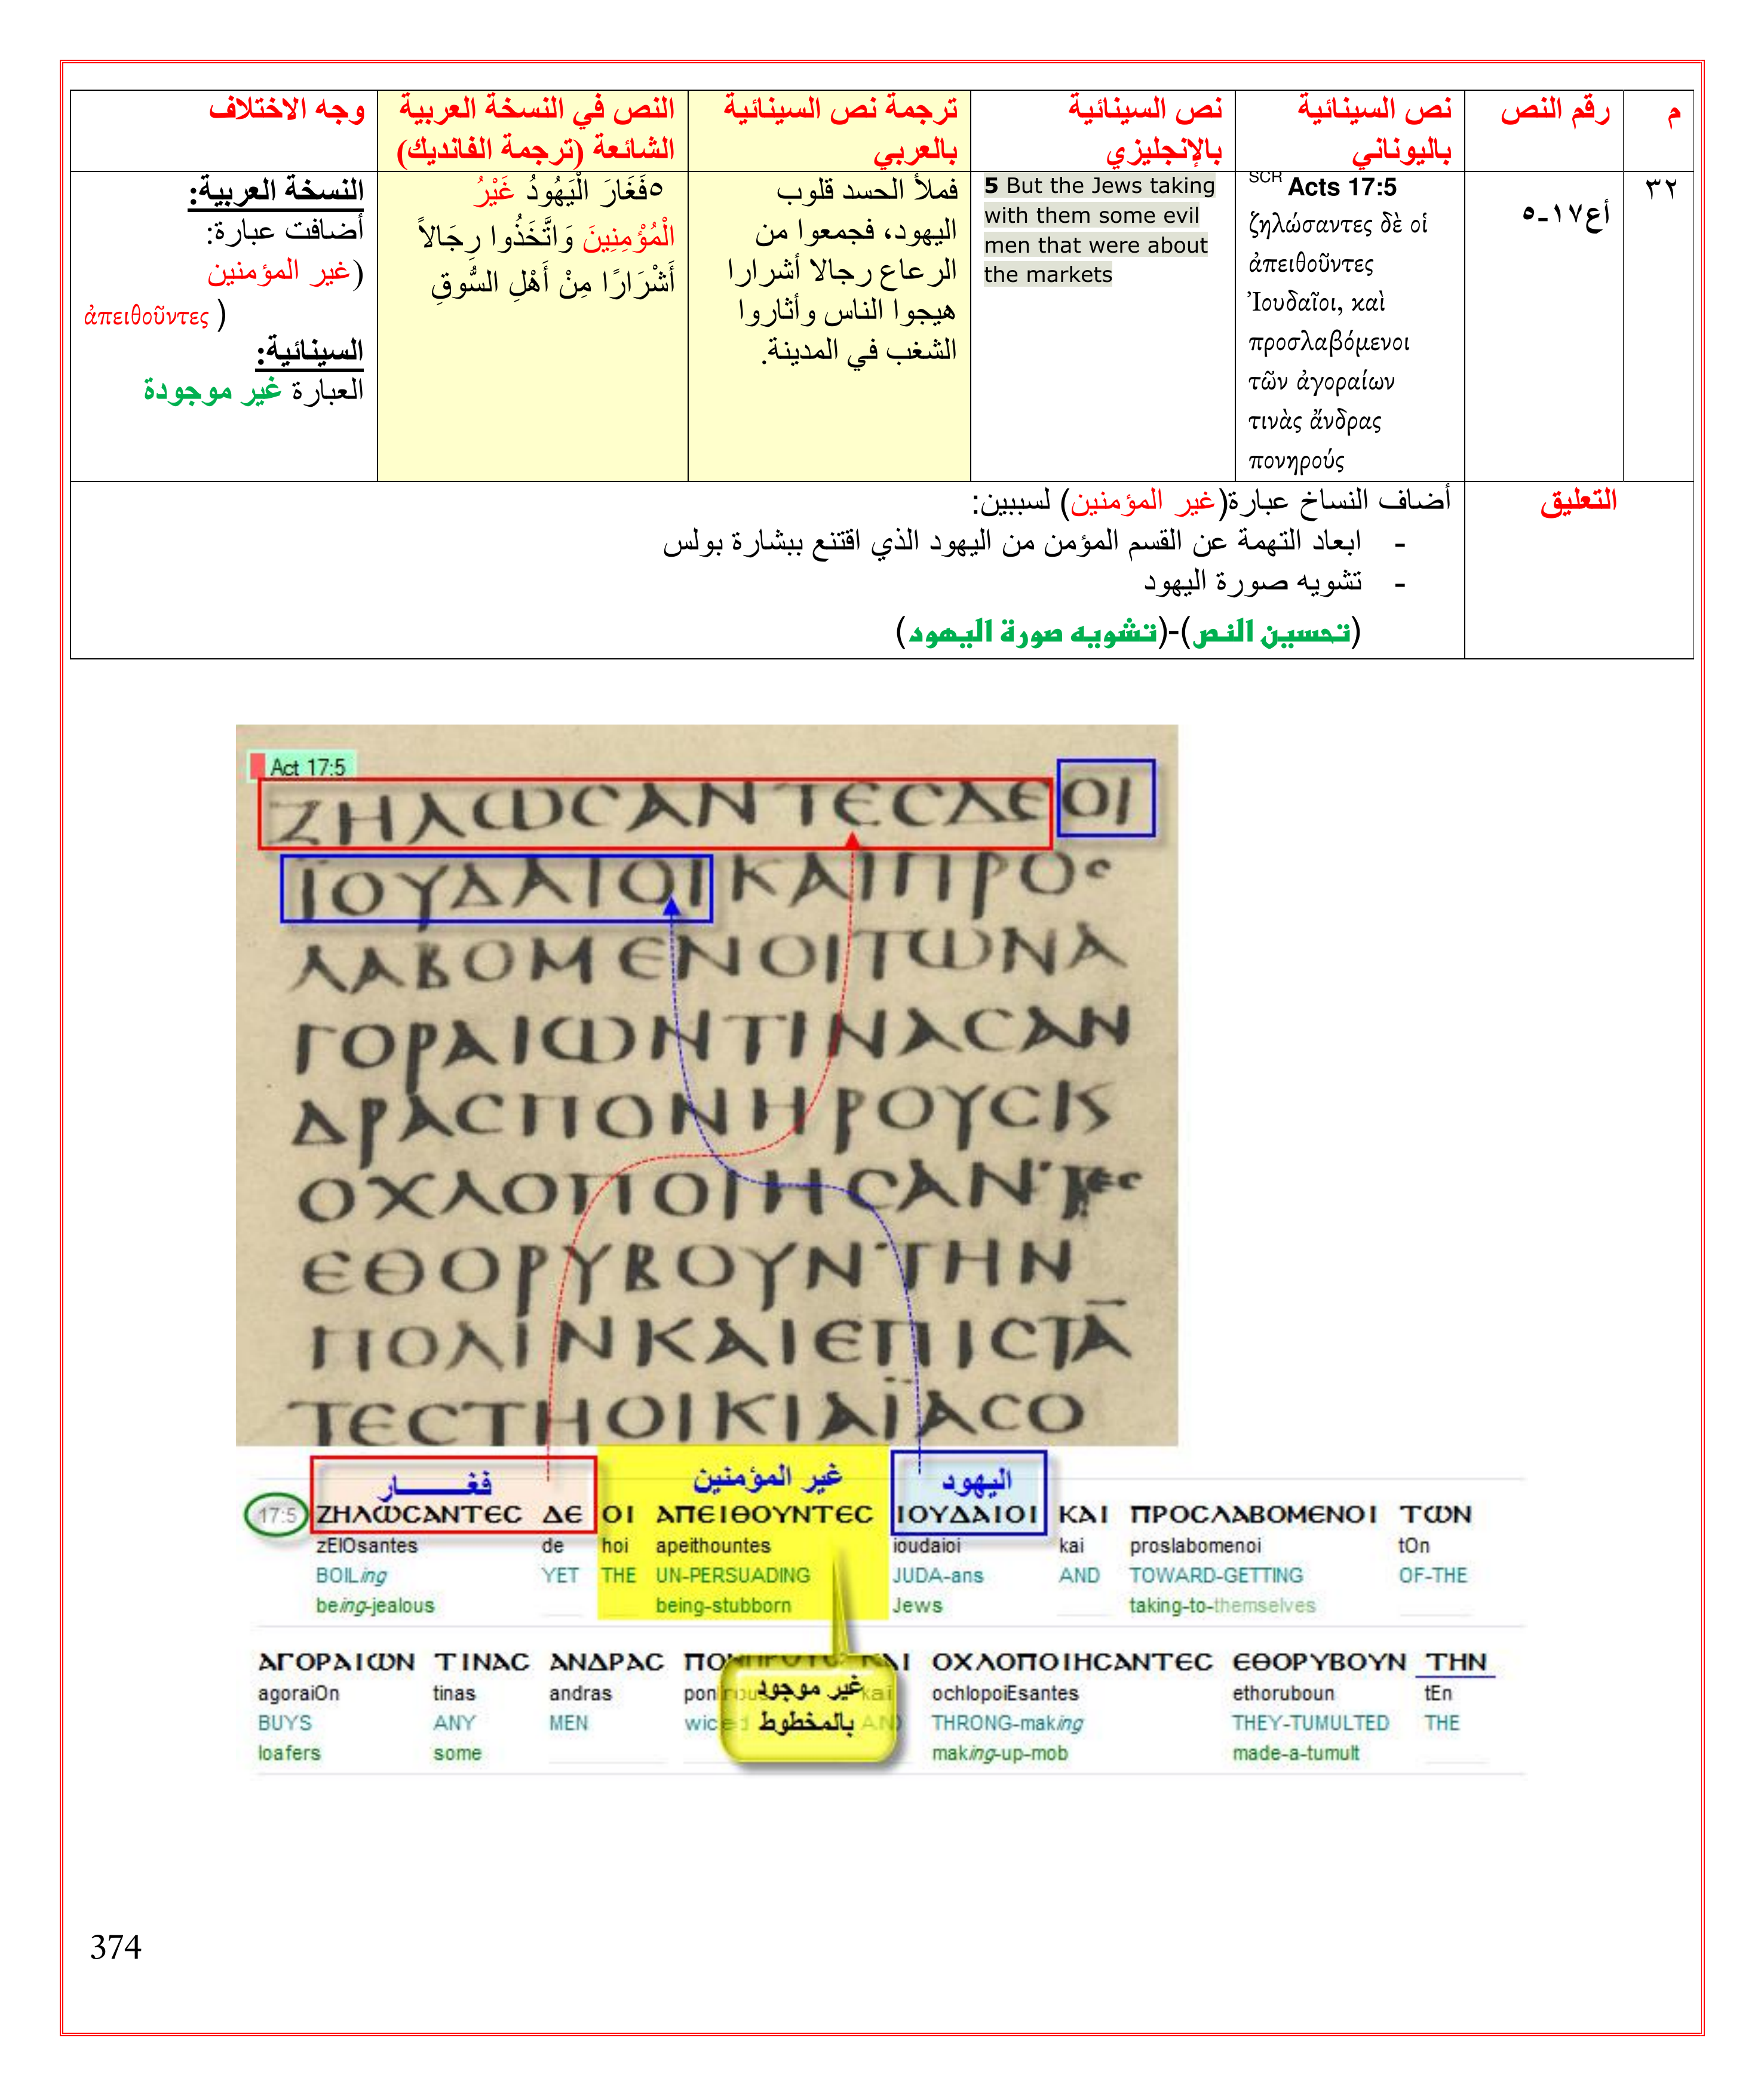 م
رقم النص
نص السينائية
باليوناني
نص السينائية
بالإنجليزي
ترجمة نص السينائية
بالعربي
النص في النسخة العربية
الشائعة (ترجمة الفانديك)
وجه الاختلاف
٣٢
أع١٧-٥
SCR Acts 17:5
ζηλώσαντες δὲ οἱ
ἀπειθοῦντες
Ἰουδαῖοι, καὶ
προσλαβόμενοι
τῶν ἀγοραίων
τινὰς ἄνδρας
πονηρούς
5 But the Jews taking
with them some evil
men that were about
the markets
فملأ الحسد قلوب
اليهود، فجمعوا من
الرعاع رجالا أشرارا
هيجوا الناس وأثاروا
الشغب في المدينة.
٥فَغَارَ الْيَهُودُ غَيْرُ
الْمُؤْمِنِينَ وَاتَّخَذُوا رِجَالاً
أَشْرَارًا مِنْ أَهْلِ السُّوقِ
النسخة العربية:
أضافت عبارة:
(غير المؤمنين
ἀπειθοῦντες )
السينائية:
العبارة غير موجودة
التعليق
أضاف النساخ عبارة(غير المؤمنين) لسببين:
- ابعاد التهمة عن القسم المؤمن من اليهود الذي اقتنع ببشارة بولس
- تشويه صورة اليهود
(تحسين النص)-(تشويه صورة اليهود)
Act 17:5
ΖΗΛΩСΑΝΤΕСΔΕΟΙ
ΪΟΥΔΑΙΟΙΚΑΙΠΡΟС
ΛΑΒΟΜΕΝΟΙΤΩΝΑ
ΓΟΡΑΙΩΝΤΙΝΑСΑΝ
ΔΡΑСΠΟΝΗΡΟΥСΚ
ΟΧΛΟΠΟΙΗСΑΝΤΕС
ΕΘΟΡΥΒΟΥΝΤΗΝ
ΠΟΛΙΝΚΑΙΕΠΙСΤΑ
ΤΕСΤΗΟΙΚΙΑΪΑСΟ
فغـــــار غير المؤمنين اليهود
17:5 ΖΗΛΩСΑΝΤΕС ΔΕ ΟΙ ΑΠΕΙΘΟΥΝΤΕС ΙΟΥΔΑΙΟΙ ΚΑΙ ΠΡΟСΛΑΒΟΜΕΝΟΙ ΤΩΝ
zElOsantes de hoi apeithountes ioudaioi kai proslabomenoi tOn
BOILing YET THE UN-PERSUADING JUDA-ans AND TOWARD-GETTING OF-THE
being-jealous being-stubborn Jews taking-to-themselves
ΑΓΟΡΑΙΩΝ ΤΙΝΑС ΑΝΔΡΑС ΟΧΛΟΠΟΙΗСΑΝΤΕС ΕΘΟΡΥΒΟΥΝ ΤΗΝ
agoraiOn tinas andras kai ochlopoiEsantes ethoruboun tEn
BUYS ANY MEN THRONG-making THEY-TUMULTED THE
loafers some making-up-mob made-a-tumult
غير موجود
بالمخطوط
374